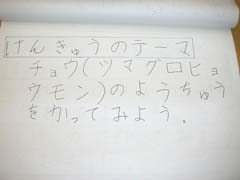 けんきゅうのテーマ
チョウ(ツマグロヒョ
ウモン)のようちゅう
をかってみよう。